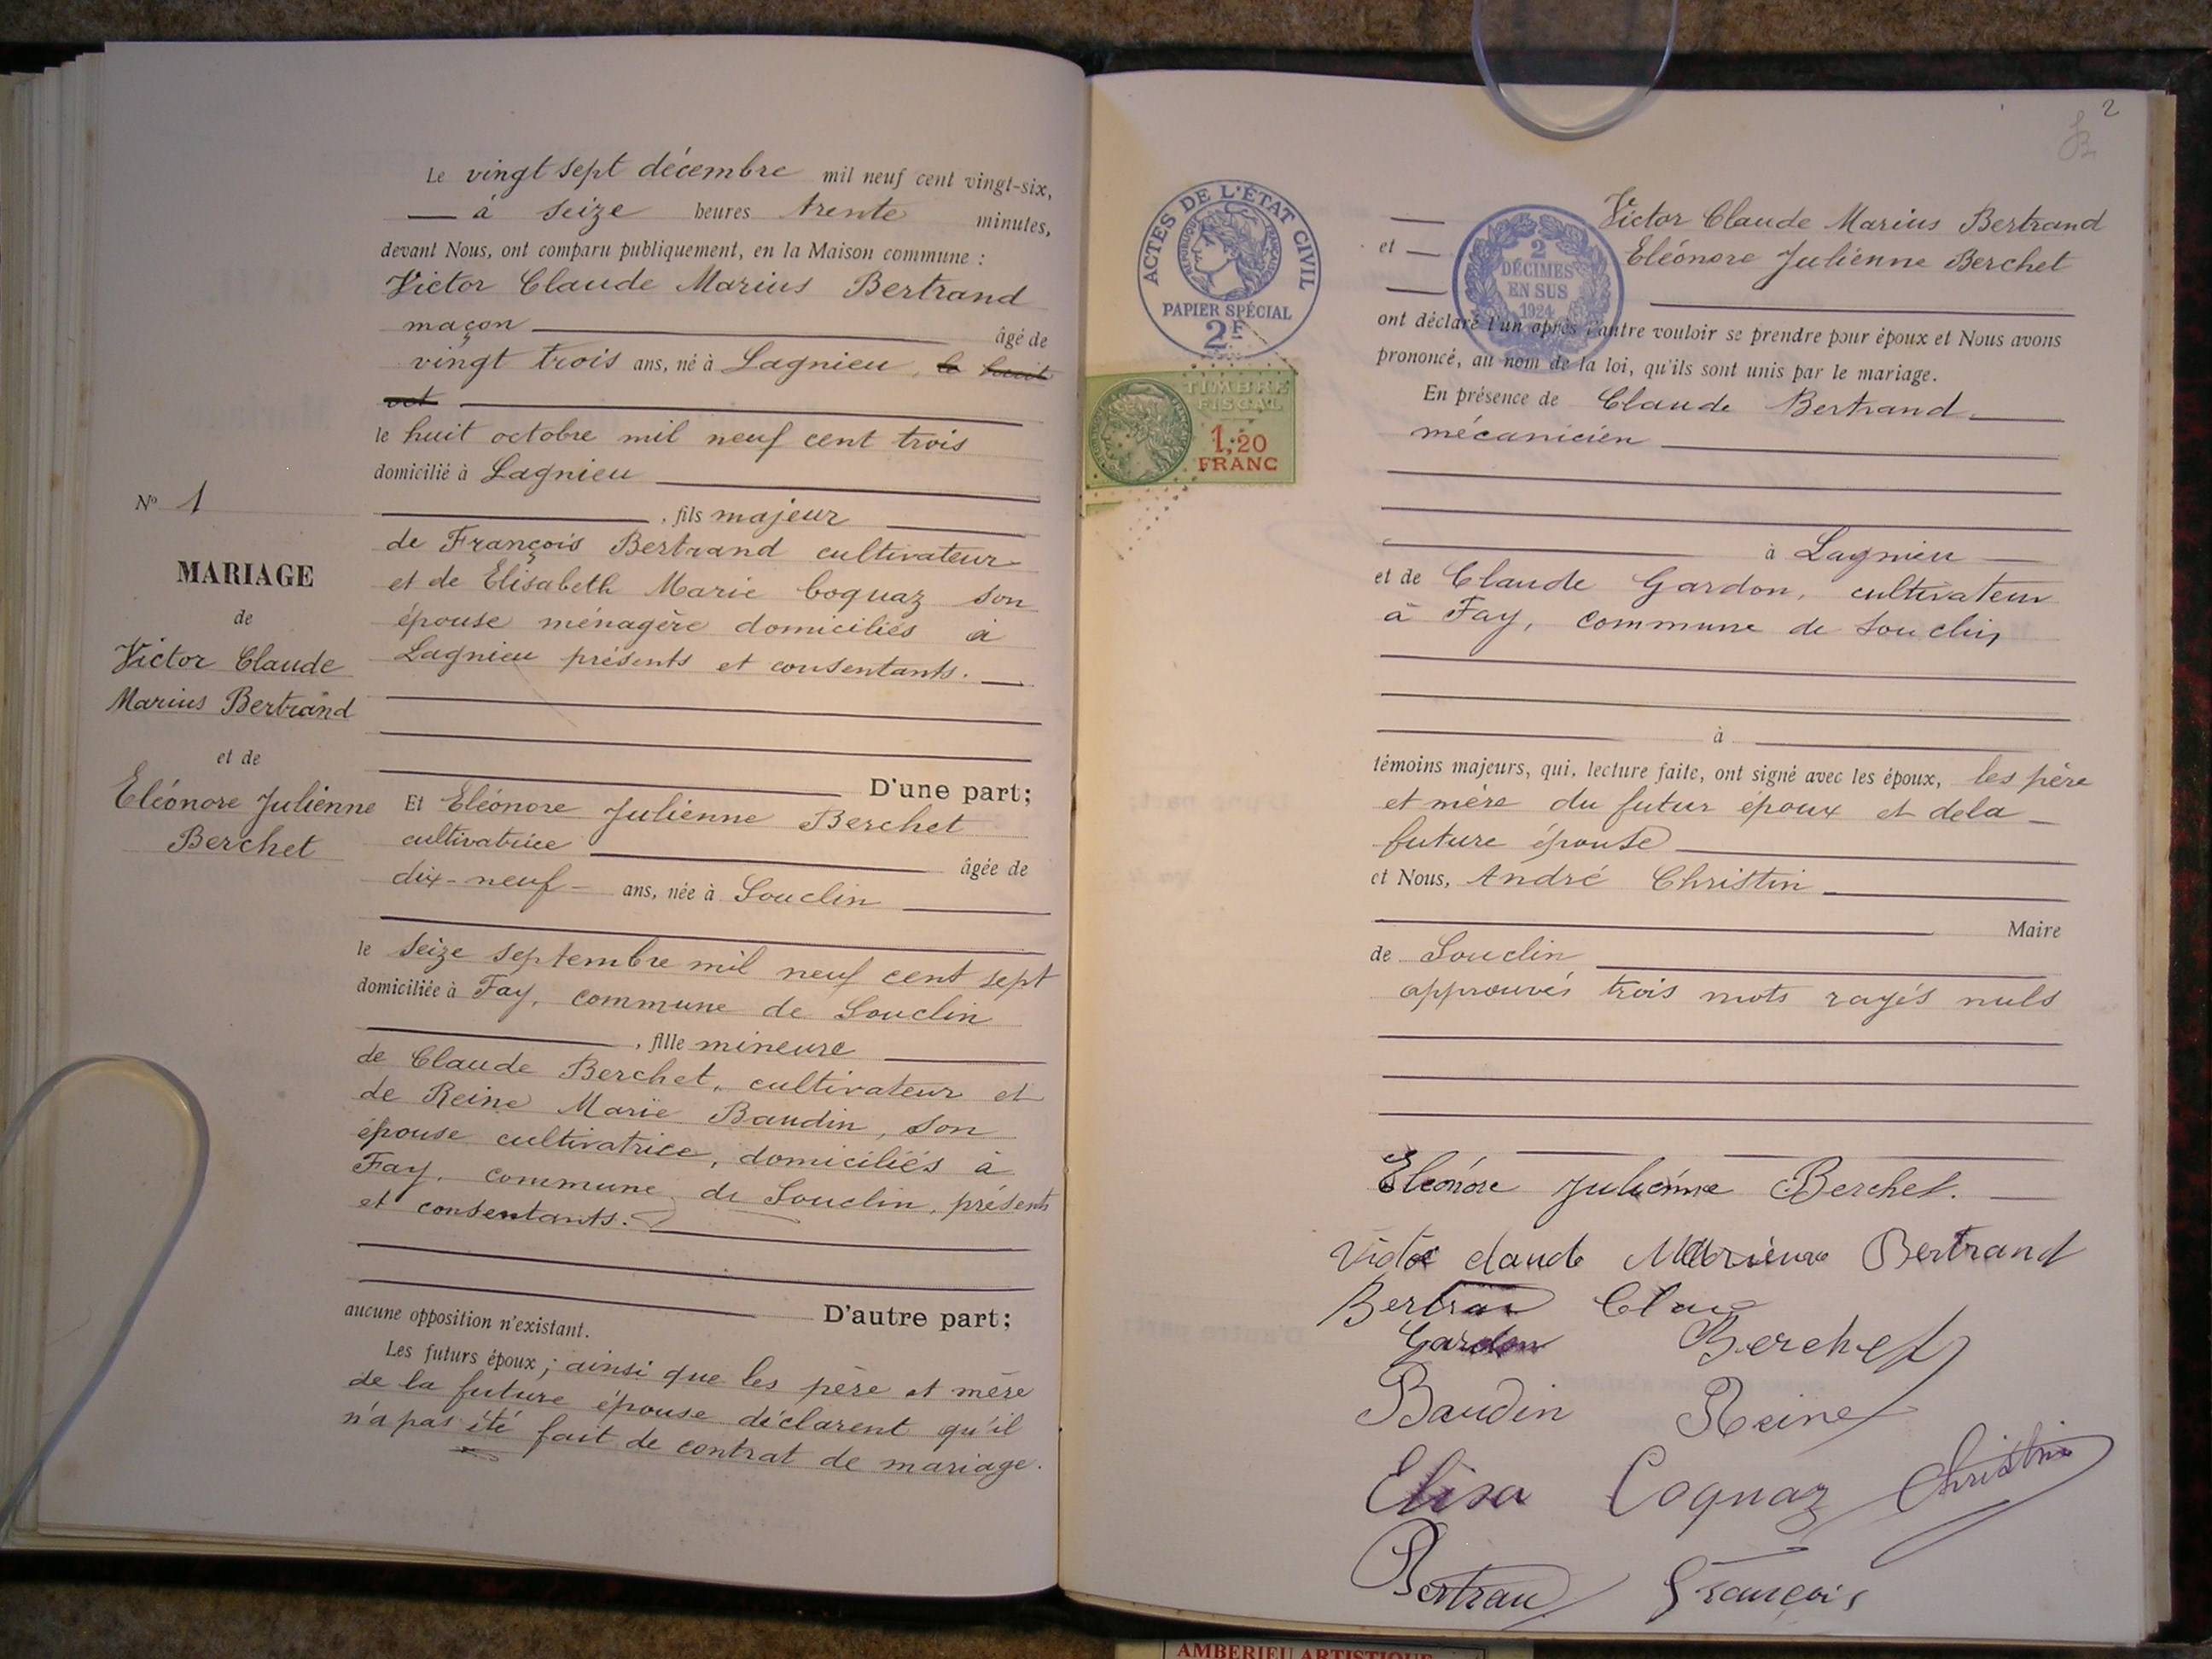 Le vingt sept décembre mil neuf cent vingt-six,
à seize heures trente minutes,
devant Nous, ont comparu publiquement, en la Maison commune :
Victor Claude Marius Bertrand
maçon âgé de
vingt trois ans, né à Lagnieu, le huit
oct
le huit octobre mil neuf cent trois
domicilié à Lagnieu
, fils majeur
de François Bertrand cultivateur
et de Elisabeth Marie Coquaz son
épouse ménagère domiciliés à
Lagnieu présents et consentants.
D'une part;
Et Eléonore Julienne Berchet
cultivatrice âgée de
dix-neuf ans, née à Souclin
le seize septembre mil neuf cent sept
domiciliée à Fay, commune de Souclin
, fille mineure
de Claude Berchet, cultivateur et
de Reine Marie Baudin, son
épouse cultivatrice, domiciliés à
Fay, commune de Souclin, présents
et consentants.
D'autre part;
aucune opposition n'existant.
Les futurs époux ; ainsi que les père et mère
de la future épouse déclarent qu'il
n'a pas été fait de contrat de mariage.
N° 1
MARIAGE
de
Victor Claude
Marius Bertrand
et de
Eléonore Julienne
Berchet
2
ACTES DE L'ÉTAT CIVIL
RÉPUBLIQUE FRANÇAISE
PAPIER SPÉCIAL
2F
TIMBRE
FISCAL
1,20
FRANC
2
DÉCIMES
EN SUS
1924
Victor Claude Marius Bertrand
et Eléonore Julienne Berchet
ont déclaré l'un après l'autre vouloir se prendre pour époux et Nous avons
prononcé, au nom de la loi, qu'ils sont unis par le mariage.
En présence de Claude Bertrand
mécanicien
à Lagnieu
et de Claude Gardon, cultivateur
à Fay, commune de Souclin
à
témoins majeurs, qui, lecture faite, ont signé avec les époux, les père
et mère du futur époux et dela
future épouse
et Nous, André Christin
Maire
de Souclin
approuvés trois mots rayés nuls
Eléonore Julienne Berchet.
Claude Bertrand
Bertran
Gardon Berchet
Baudin Reine
Elisa Coquaz Christin
Bertran François
AMBERIEU ARTISTIQUE